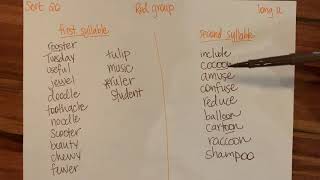 Sort 20 Red group long u
first syllable
rooster
Tuesday
useful
jewel
doodle
toothache
noodle
scooter
beauty
chewy
fewer
tulip
music
ruler
student
second syllable
include
cocoon
amuse
confuse
reduce
balloon
cartoon
raccoon
shampoo